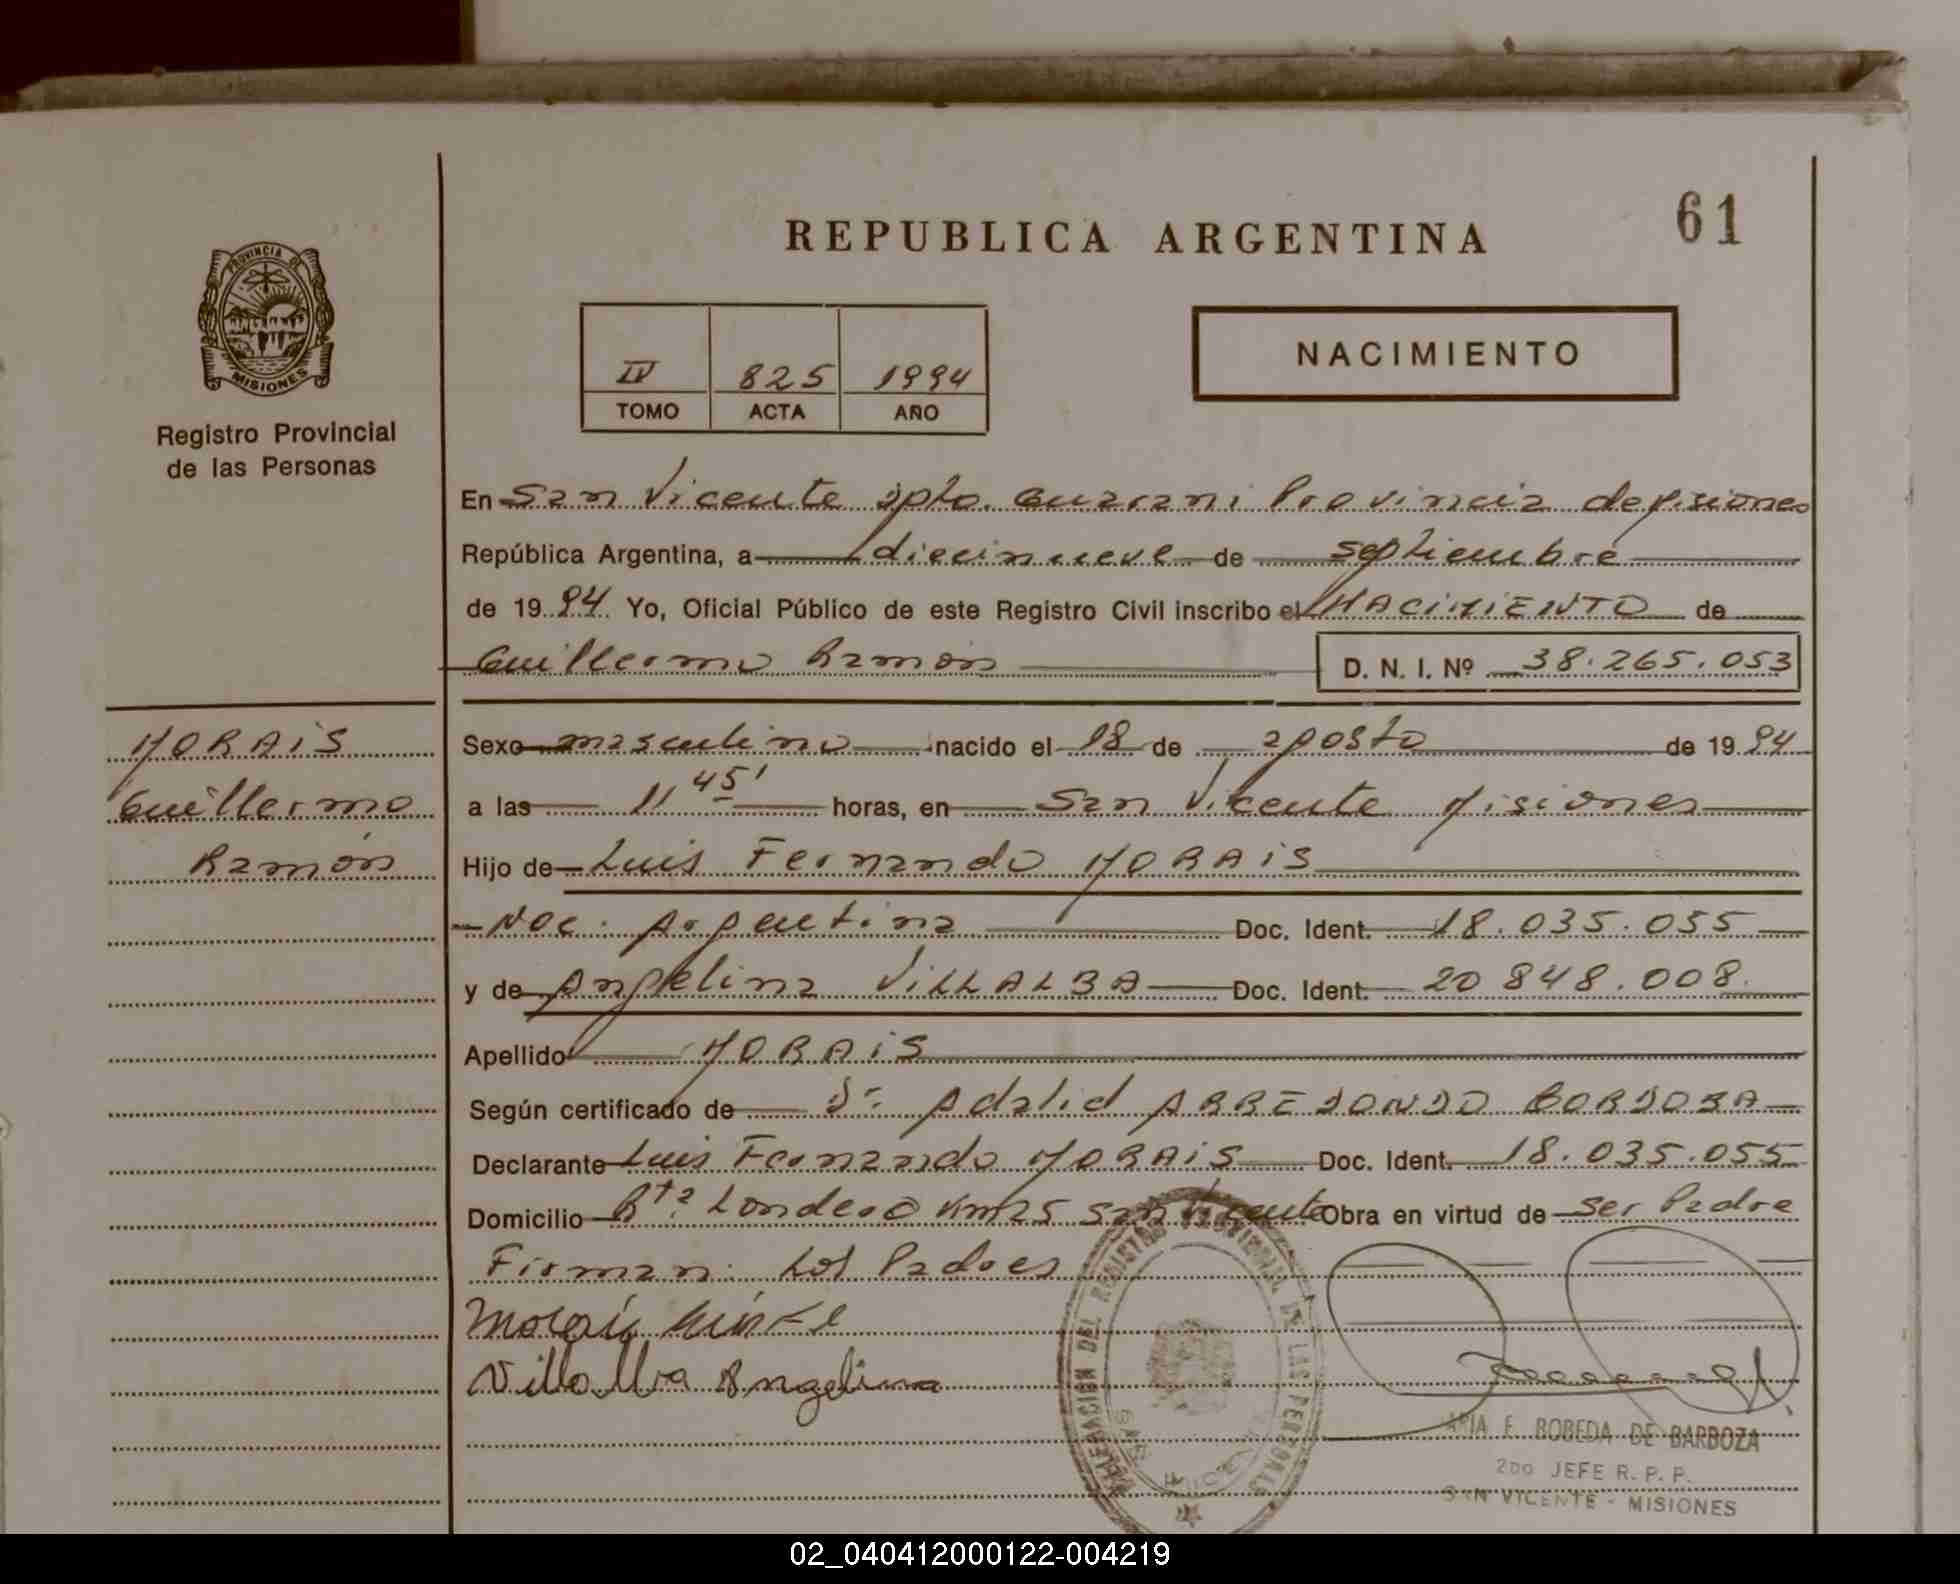 61
REPUBLICA ARGENTINA
PROVINCIA DE
MISIONES
Registro Provincial
de las Personas
IV 825 1994
TOMO ACTA AÑO
NACIMIENTO
En San Vicente Dpto. Guarani Provincia de Misiones
República Argentina, a diecinueve de septiembre
de 1994 Yo, Oficial Público de este Registro Civil inscribo el NACIMIENTO de
Guillermo Ramón D. N. I. Nº 38.265.053
MORAIS
Guillermo
Ramón
Sexo masculino nacido el 18 de agosto de 1994
a las 11 45' horas, en San Vicente Misiones
Hijo de Luis Fernando MORAIS
Nac. Argentina Doc. Ident. 18.035.055
y de Angelina VILLALBA Doc. Ident. 20 848.008.
Apellido MORAIS
Según certificado de Dr. Adalid ARREDONDO CORDOBA
Declarante Luis Fernando MORAIS Doc. Ident. 18.035.055
Domicilio Rta Londero Km 25 San Vicente Obra en virtud de ser Padre
Firman Los Padres
Villalba Angelina
DELEGACION DEL REGISTRO PROVINCIAL DE LAS PERSONAS
SAN VICENTE
ARIA E. BOBEDA DE BARBOZA
2DO JEFE R. P. P.
SAN VICENTE - MISIONES
02_040412000122-004219